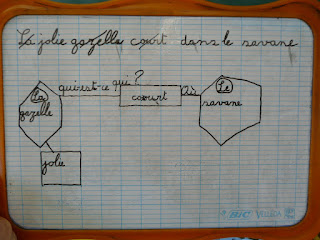 La jolie gazelle court dans le savane
qui-est-ce qui?
La
gazelle
court
Où
Le
savane
jolie
BIC VELLEDA